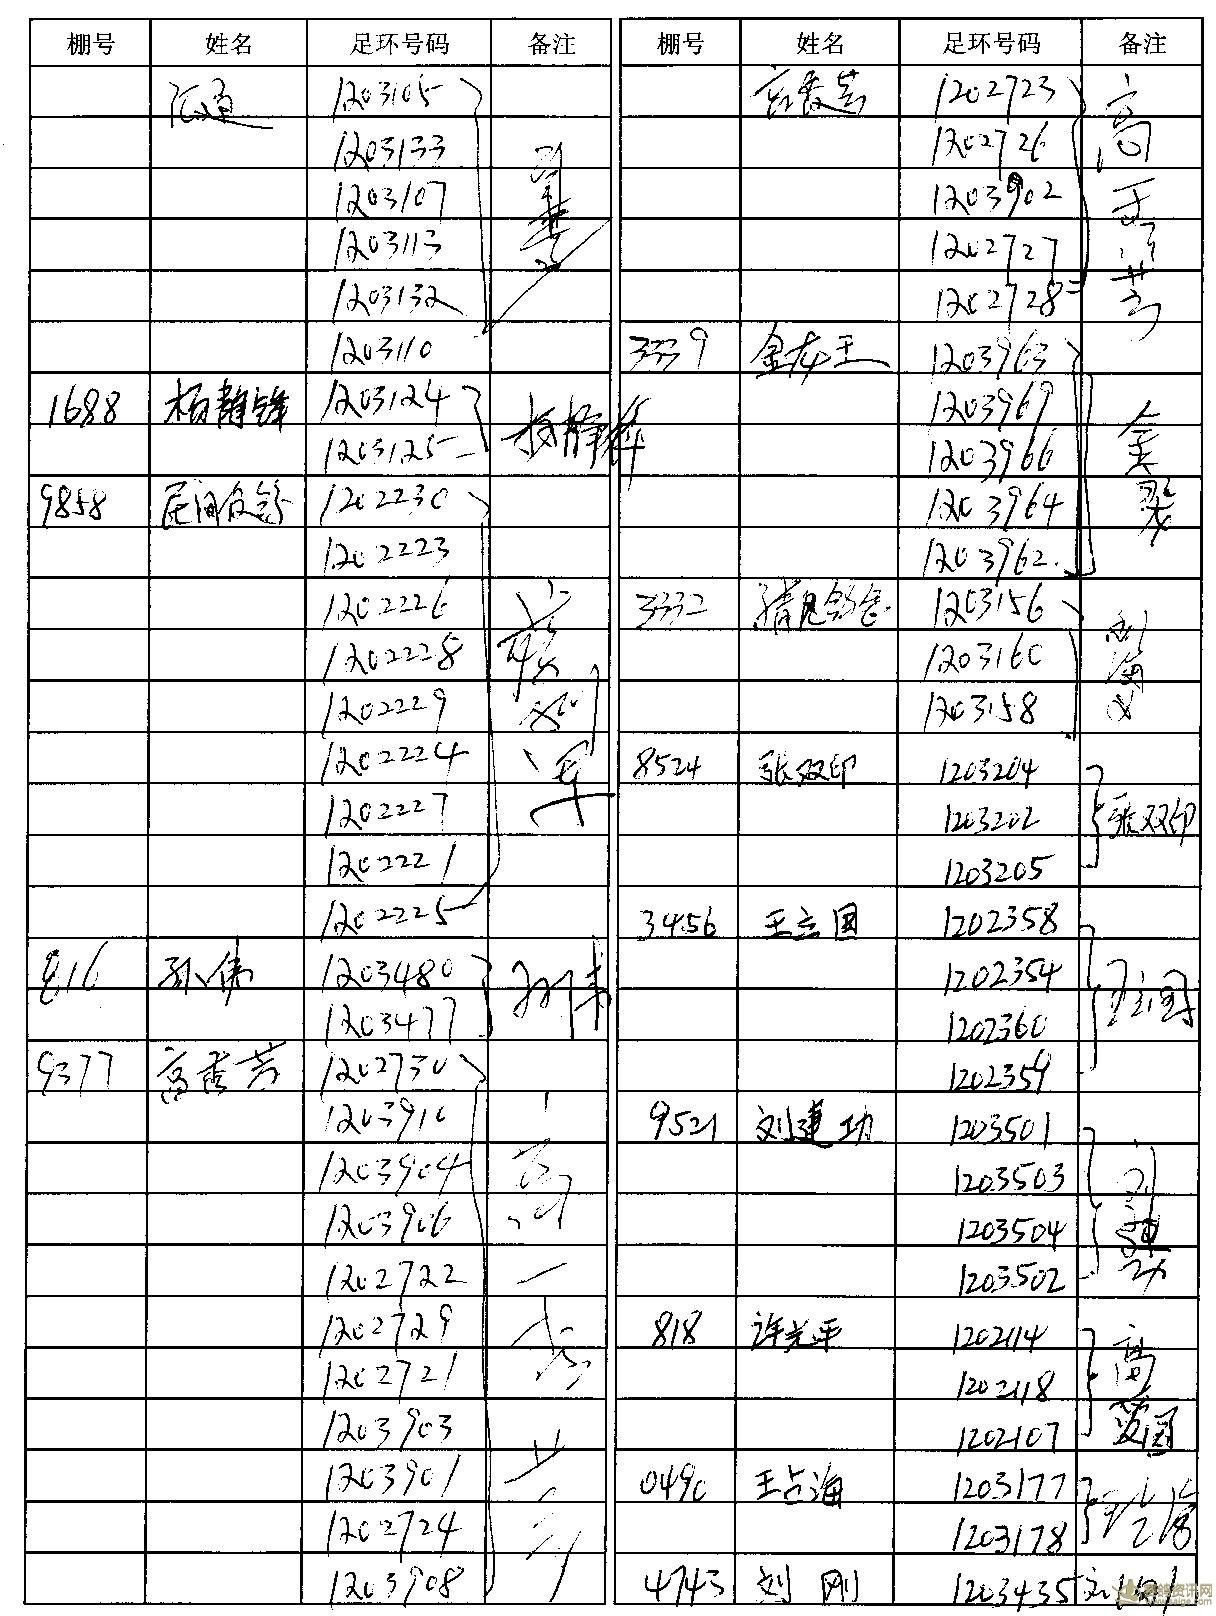 棚号 姓名 足环号码 备注
1203105
1203133
1203107
1203113
1203132
1203110
1688 杨静锋 1203124 杨静锋
1203125
9858 民间 1202230
1202223
1202226
1202228
1202229
1202224
1202227
1202221
1202225
816 孙伟 1203480 孙伟
1203477
9377 高秀芳 1202730 高秀芳
1203910
1203904
1203906
1202722
1202729
1202721
1203903
1203901
1202724
1203908
棚号 姓名 足环号码 备注
1202723
1202726
1203902
1202727
1202728
3339 金龙王 1203963
1203969
1203966
1203964
1203962
3332 1203156
1203160
1203158
8524 张双印 1203204
1203202 张双印
1203205
3456 王立国 1202358
1202354 王立国
1202360
1202359
9521 刘建功 1203501
1203503 刘建功
1203504
1203502
818 许光平 1202114
1202118
1202107
0490 王占海 1203177 王占海
1203178
4743 刘刚 1203435 刘刚